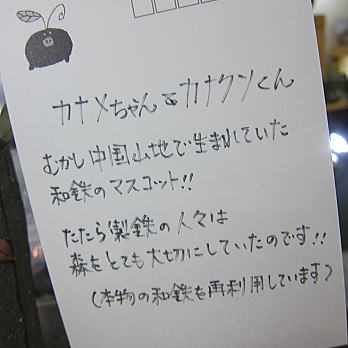 カナメちゃんとカナクソくん
むかし中国山地で生まれていた
和鉄のマスコット!!
たたら製鉄の人々は
森をとても大切にしていたのです!!
(本物の和鉄を再利用しています)